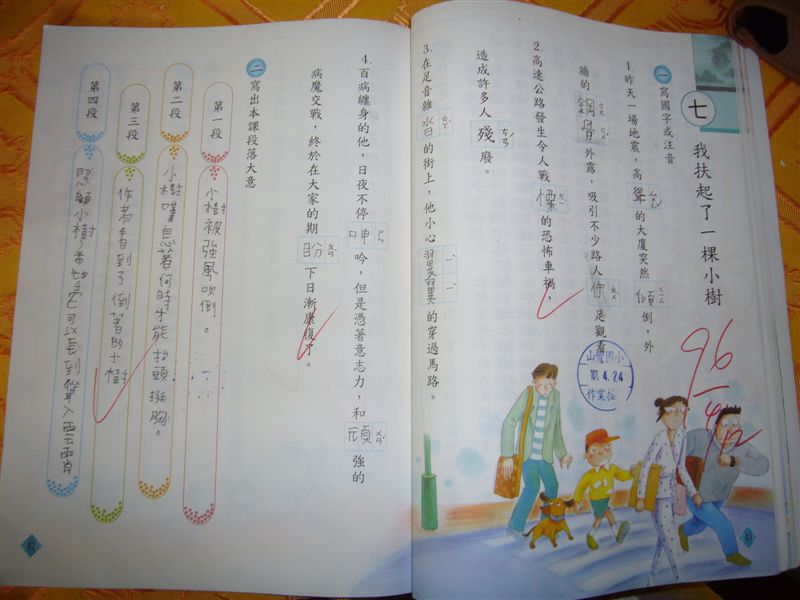 七 我扶起了一棵小樹
一 寫國字或注音
1. 昨天一場地震，高聳的大廈突然傾倒，外
牆的鋼骨外露，吸引不少路人佇足觀看
2. 高速公路發生令人戰慄的恐怖車禍，
造成許多人殘廢。
3. 在足音雜沓的街上，他小心翼翼的穿過馬路。
96
山 國小
101.4.24
作業社
40
4. 百病纏身的他，日夜不停呻吟，但是憑著意志力，和頑強的
病魔交戰，終於在大家的期盼下日漸康復了。
二 寫出本課段落大意
第一段 小樹被強風吹倒。
第二段 小樹嘆息著何時才能抬頭挺胸。
第三段 作者看到了倒著的小樹
第四段 照顧小樹，希望它可以長到聳入雲霄
41